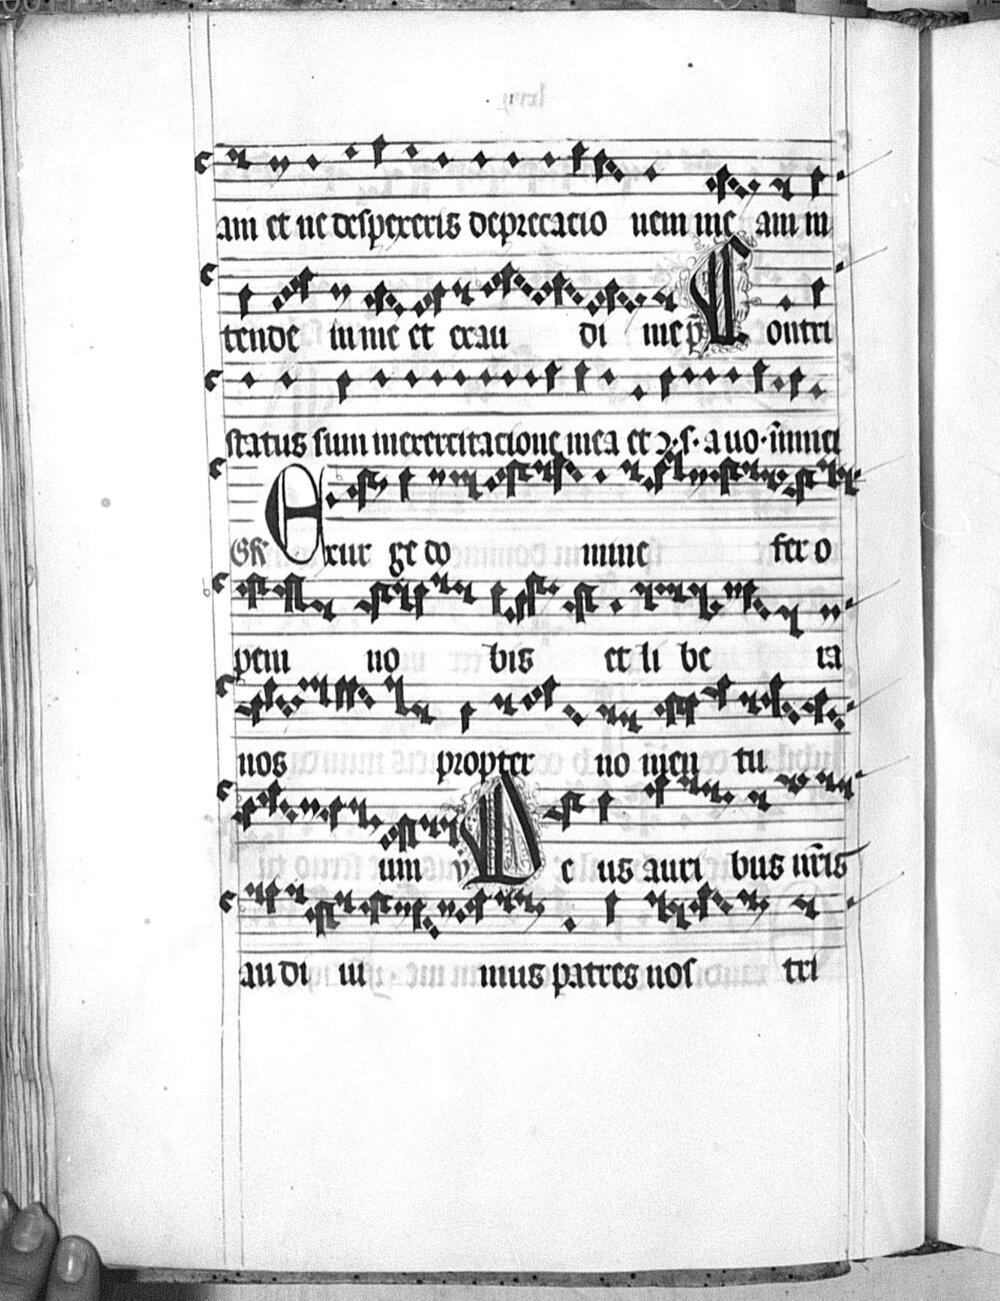 am et ne despexeris deprecacio nem me am in
tende in me et exau di me p̄s Contri
status sum in exercitacione mea et a vo inimici
Gr̄ Exur ge do mine fer o
pem no bis et li be ra
nos propter no men tu
um v̄ Deus auri bus nr̄is
au di ui mus patres nos tri